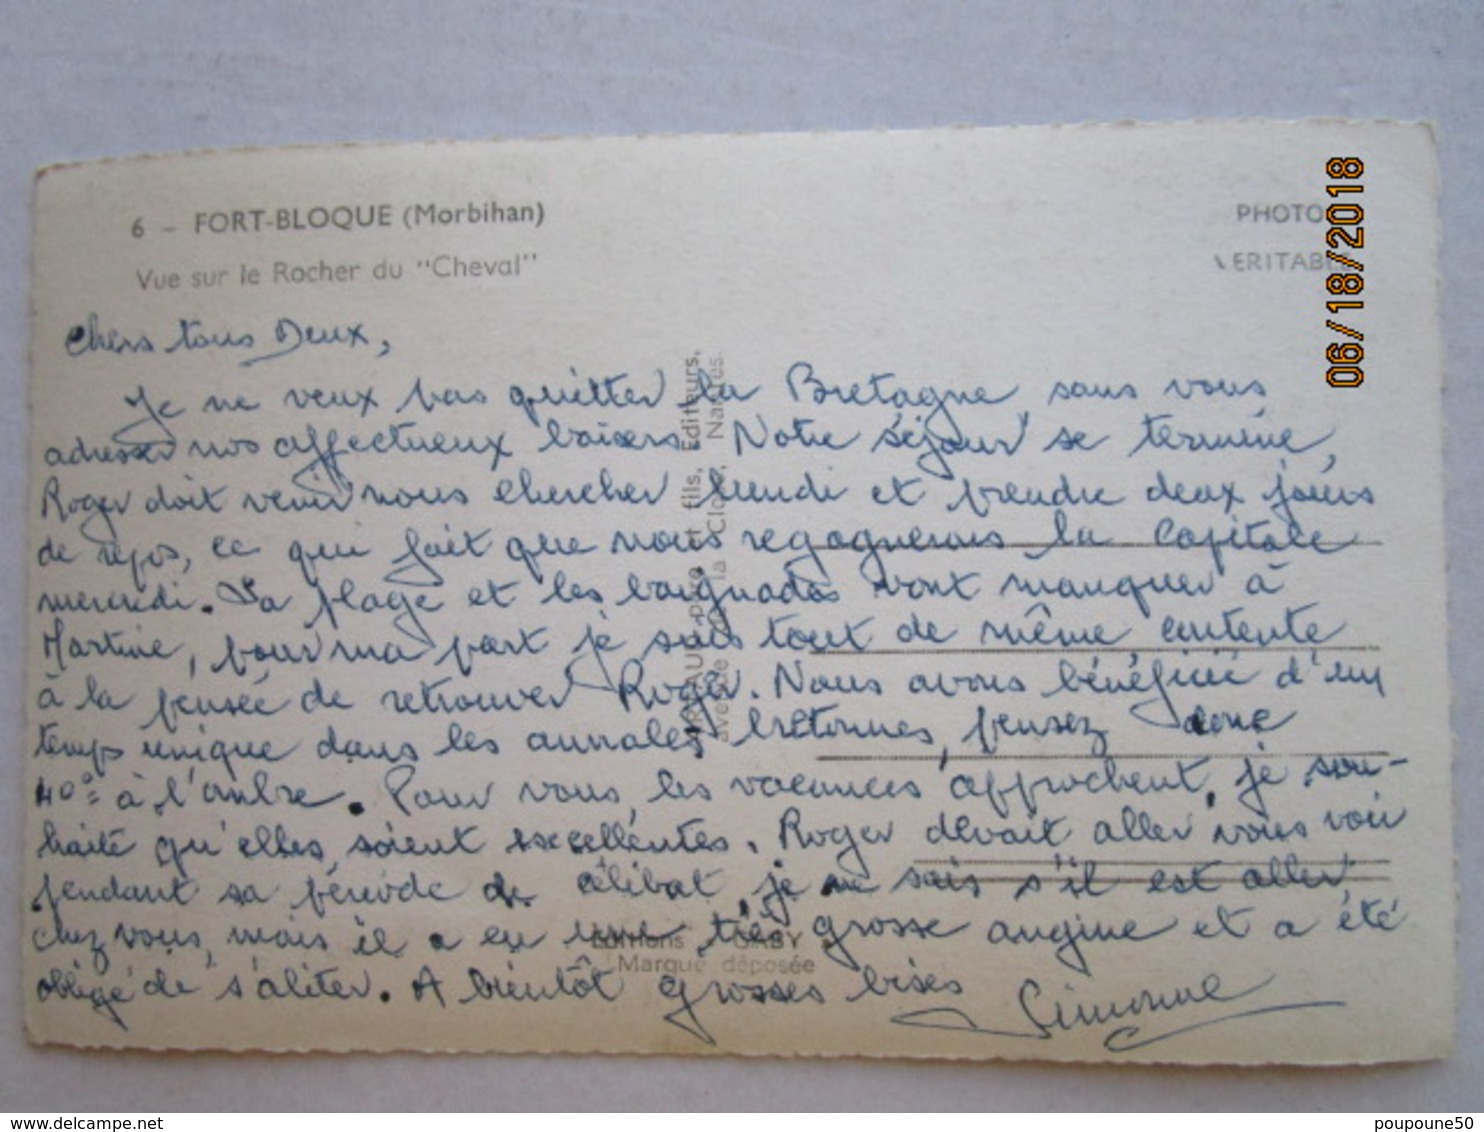 6 - FORT-BLOQUE (Morbihan)
Vue sur le Rocher du "Cheval"
PHOTO
VERITABLE
06/18/2018
Chers tous Deux,
Je ne veux pas quitter la Bretagne sans vous
adresser nos affectueux baisers. Notre séjour se termine,
Roger doit venir nous chercher lundi et prendre deux jours
de repos, ce qui fait que nous regagnerons la Capitale
mercredi. La plage et les baignades vont manquer à
Martine, pour ma part je suis tout de même contente
à la pensée de retrouver Roger. Nous avons bénéficié d'un
temps unique dans les annales bretonnes, pensez donc
40° à l'ombre. Pour vous, les vacances approchent, je sou-
haite qu'elles soient excellentes. Roger devait aller vous voir
pendant sa période de célibat, je ne sais s'il est aller
chez vous, mais il a eu une très grosse angine et a été
obligé de s'aliter. A bientôt grosses bises Simonne
ARTAUD père et fils, Editeurs,
avenue de la Close, Nantes.
Editions GABY
Marque déposée
poupoune50